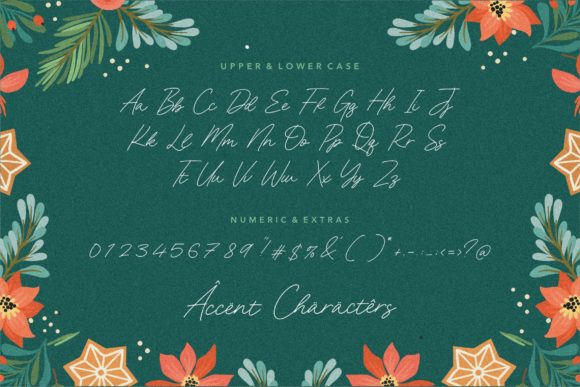 UPPER & LOWER CASE
Aa Bb Cc Dd Ee Ff Gg Hh Ii Jj
Kk Ll Mm Nn Oo Pp Qq Rr Ss
Tt Uu Vv Ww Xx Yy Zz
NUMERIC & EXTRAS
0123456789!"#$%&'()*+,-.:;_<=>?@
Àccënt Châräctêrs